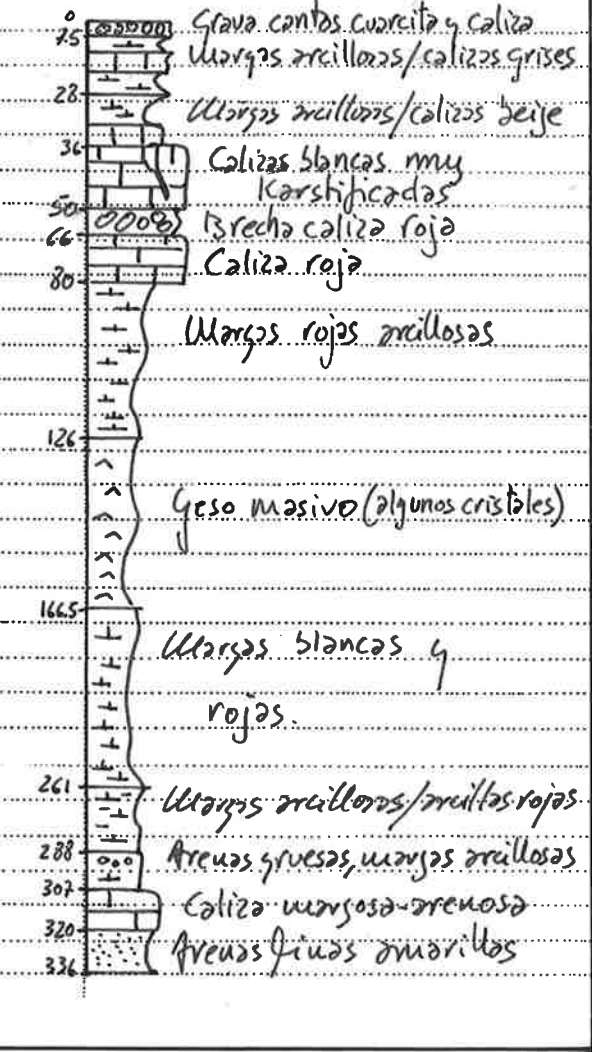 0 Grava cantos cuarcita y caliza
7.5
Margas arcillosas/calizas grises
23
Margas arcillosas/calizas beije
36
Calizas blancas muy
Karstificadas
50
Brecha caliza roja
66
Caliza roja
80
Margas rojas arcillosas
126
Yeso masivo (algunos cristales)
166.5
Margas blancas y
rojas.
261
Margas arcillosas/arcillas rojas
288 Arenas gruesas, margas arcillosas
307
Caliza margosa-arenosa
320
Arenas finas amarillas
336